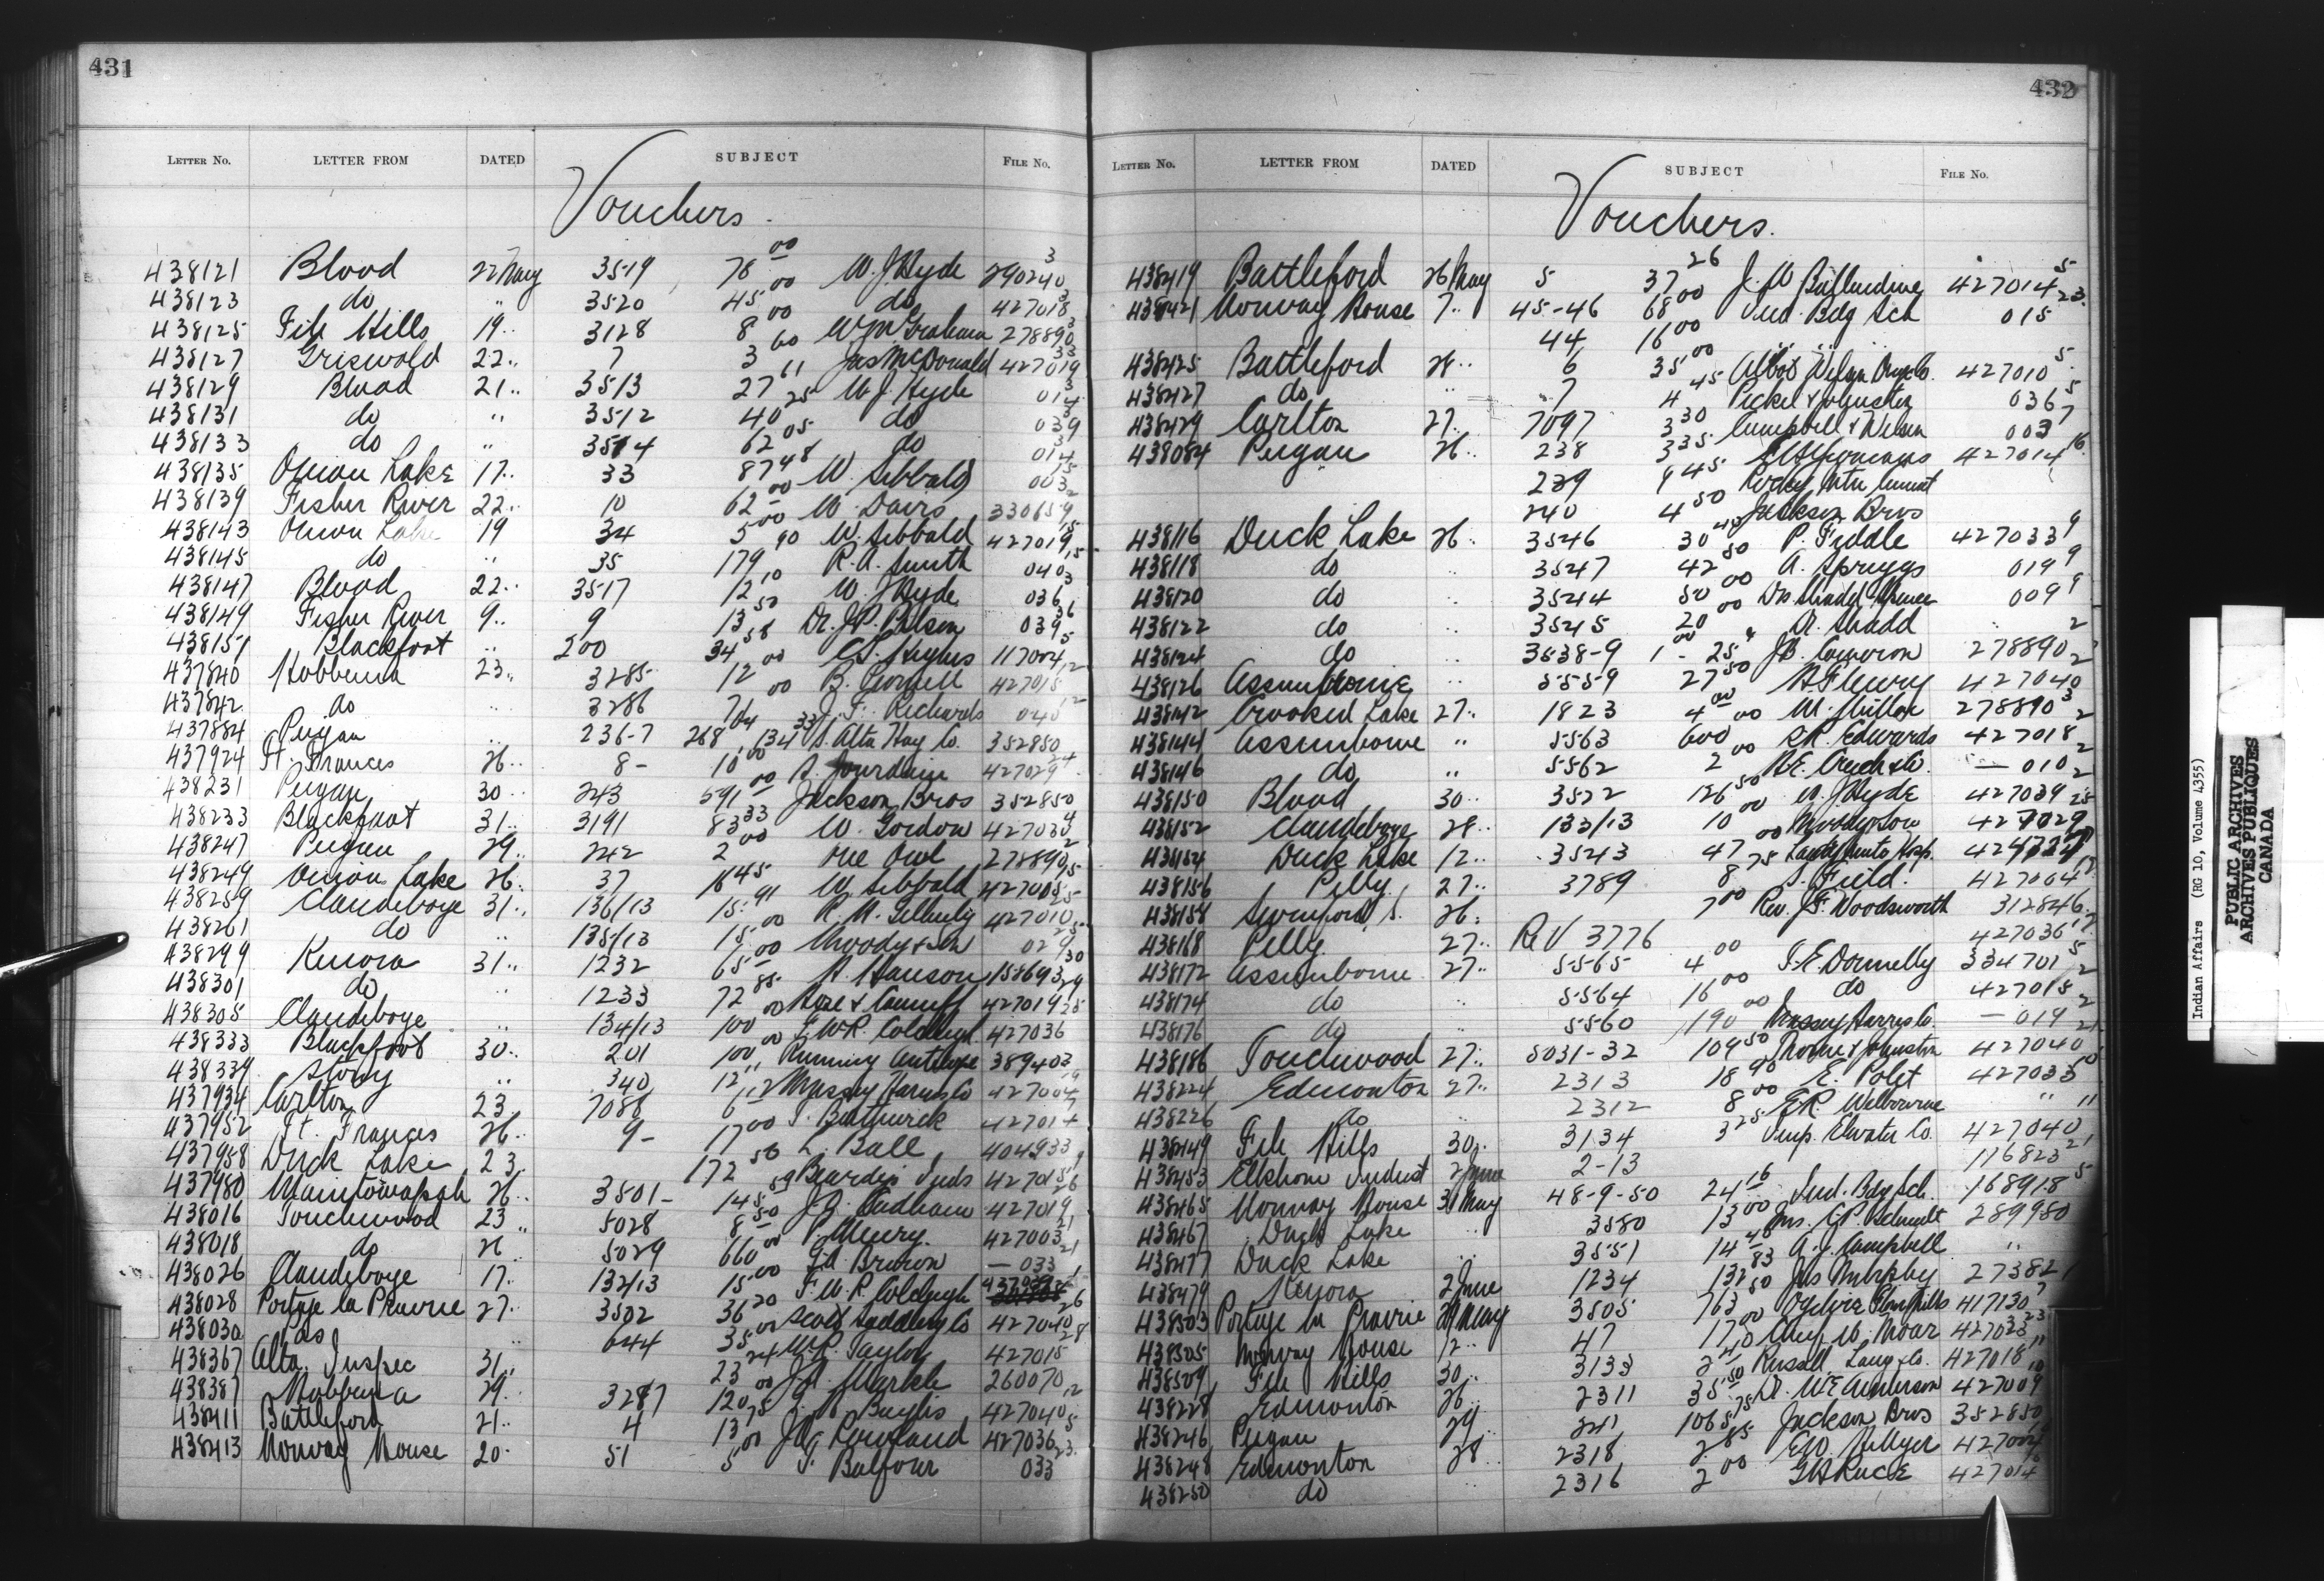 431
LETTER No. LETTER FROM DATED SUBJECT FILE No.
Vouchers.
438121 Blood 22 May 3519 78 00 W. J. Hyde 290240 3
438123 do " 3520 45 00 do 427018 3
438125 File Hills 19 .. 3128 8 00 W M Graham 278890 3
438127 Griswold 22 .. 7 3 60 Jas McDonald 427019 33
438129 Blood 21 .. 3513 27 11 W. J. Hyde 014 3
438131 do " 3512 40 25 do 039 3
438133 do " 3514 62 05 do 014 3
438135 Onion Lake 17 .. 33 87 48 W. Sibbald 003 15
438139 Fisher River 22 .. 10 62 00 W. Davis 330659 2
438143 Onion Lake 19 34 5 00 W. Sibbald 427019 15
438145 do .. 35 179 90 R. A. Smith 040 15
438147 Blood 22 .. 3517 12 10 W. J. Hyde 036 3
438149 Fisher River 9 .. 9 13 50 Dr. J. R. 039 36
438151 Blackfoot .. 200 34 58 Hughes 117004 5
437840 Hobbema 23 .. 3285 12 00 B. 427015 12
437842 do .. 3286 7 00 J. F. Richards 040 12
437884 Peigan .. 236-7 268 134 33 S. Alta Hay Co. 352850
437924 Ft. Frances 26 .. 8 - 10 00 A. Jourdain 427029 24
438231 Peigan 30 .. 243 591 00 Jackson Bros 352850
438233 Blackfoot 31 .. 3191 83 33 W. Gordon 427034
438247 Peigan 29 .. 242 2 00 One Owl 278890
438249 Onion Lake 26 .. 37 16 45 W. Sibbald 427005 15
438259 Clandeboye 31 .. 136/13 15 91 R. A. Gillespie 427010 25
438261 do .. 135/13 15 00 Moody & Son 029 25
438299 Kenora 31 .. 1232 65 00 H. Hanson 158693 30
438301 do .. 1233 72 85 Hose & Canniff 427019 29
438305 Clandeboye .. 134/13 100 00 F. W. R. Colcleugh 427036 25
438333 Blackfoot 30 .. 201 100 00 Running Antelope 389403
438339 Stony .. 340 12 Massey Harris Co 427004
437934 Carlton 23 7086 6 S. Bothwick 427014
437952 Ft. Frances 26 .. 9 - 17 00 L. Ball 404933
437958 Duck Lake 23 172 50 Beardys Inds 427015
437980 Manitowapah 26 .. 3501 - 14 59 J. G. Oudham 427019 26
438016 Touchwood 23 .. 5028 8 50 P. Fleury. 427003 21
438018 do 26 5029 660 00 Ed Brown - 033 21
438026 Clandeboye 17 .. 132/13 15 00 F. W. R. Colcleugh
438028 Portage la Prairie 27 .. 3502 36 20 Scott Saddlery Co 427040 26
438030 do .. 644 35 00 W. R. Taylor 427015 28
438367 Alta. Inspec 31 .. 23 24 J. A. Markle 260070
438387 Hobbema 29 .. 3287 120 00 Baylis 427040 12
438411 Battleford 21 .. 4 13 75 J. A. Rowland 427036 5
438413 Norway House 20 .. 51 5 00 T. Balfour 033 23
432
LETTER No. LETTER FROM DATED SUBJECT FILE No.
Vouchers.
438419 Battleford 26 May 5 37 26 J. W. Ballendine 427014 5
438421 Norway House 7 .. 45-46 68 00 Ind. Bdg Sch 015 23
44 16 00 " "
438425 Battleford 28 .. 6 35 00 Albert Wilson Drug Co. 427010 5
438427 do .. 7 4 45 Pickel & Johnston 036 5
438429 Carlton 27 .. 7097 3 30 Campbell & Wilson 003 7
438084 Peigan 26 .. 238 3 35 427014 16
239 9 45 Rocky Mtn Cement
240 4 50 Jackson Bros
438116 Duck Lake 26 .. 3546 30 45 P. Fiddle 427033 9
438118 do .. 3547 42 50 A. Spriggs 019 9
438120 do .. 3544 50 00 Drs Shadd Spence 009 9
438122 do .. 3545 20 00 Dr. Shadd .. 2
438124 do .. 3538-9 1 00 - 25 J. B. Cameron 278890 2
438126 Assiniboine .. 5559 27 50 H. Fleury 427040
438142 Crooked Lake 27 .. 1823 4 00 M. Miller 278890 3
438144 Assiniboine " 5563 600 00 S. R. Edwards 427018 2
438146 do .. 5562 2 00 B. E. Creech & Co. - 010 2
438150 Blood 30 .. 3522 126 50 W. J. Hyde 427039
438152 Clandeboye 28 .. 133/13 10 00 Moody & Son 427029 25
438154 Duck Lake 12 .. 3543 47 00 Lady Minto Hosp.
438156 Pelly 27 .. 3789 8 75 S. Field. 427004 17
438158 Swinford, S. 26 .. 7 00 Rev. J. F. Woodsworth 312846
438168 Pelly 27 .. Re V 3776 427036 17
438172 Assiniboine 27 .. 5565 4 00 T. E. Donnelly 334701 5
438174 do .. 5564 16 00 do 427018 2
438176 do .. 5560 190 00 Massey Harris Co. - 019 2
438186 Touchwood 27 .. 5031-32 109 50 Thorne & Johnston 427040 21
438224 Edmonton 27 .. 2313 18 90 E. Polet 427033 10
438226 do .. 2312 8 00 E. R. Welbourne " "
438449 File Hills 30 .. 3134 3 25 Imp. Elevator Co. 427040
438453 Elkhorn Indust 2 June 2-13 116823 21
438465 Norway House 31 May 48-9-50 24 16 Ind. Bdg Sch. 168918 5
438467 Duck Lake .. 3550 13 00 Mrs. C. P. Schmidt 289980
438477 Duck Lake .. 3551 14 40 A. J. Campbell ..
438479 Kenora 2 June 1234 132 83 Jas Murphy 273821
438503 Portage la Prairie 29 May 3505 763 50 Ogilvie Flour Mills 417130
438505 Norway House 12 .. 47 17 00 Angus W. Moar 427023 23
438509 File Hills 30 .. 3133 2 10 Russell Lang & Co. 427018 11
438228 Edmonton 26 .. 2311 35 50 Dr. W E Anderson 427009 10
438246 Peigan 29 .. 241 1065 75 Jackson Bros 352850
438248 Edmonton 28 .. 2318 2 85 E. W. Hillyer 427004
438250 do .. 2316 2 00 G. H. Race 427014
Indian Affairs (RG 10, Volume 4355)
PUBLIC ARCHIVES
ARCHIVES PUBLIQUES
CANADA